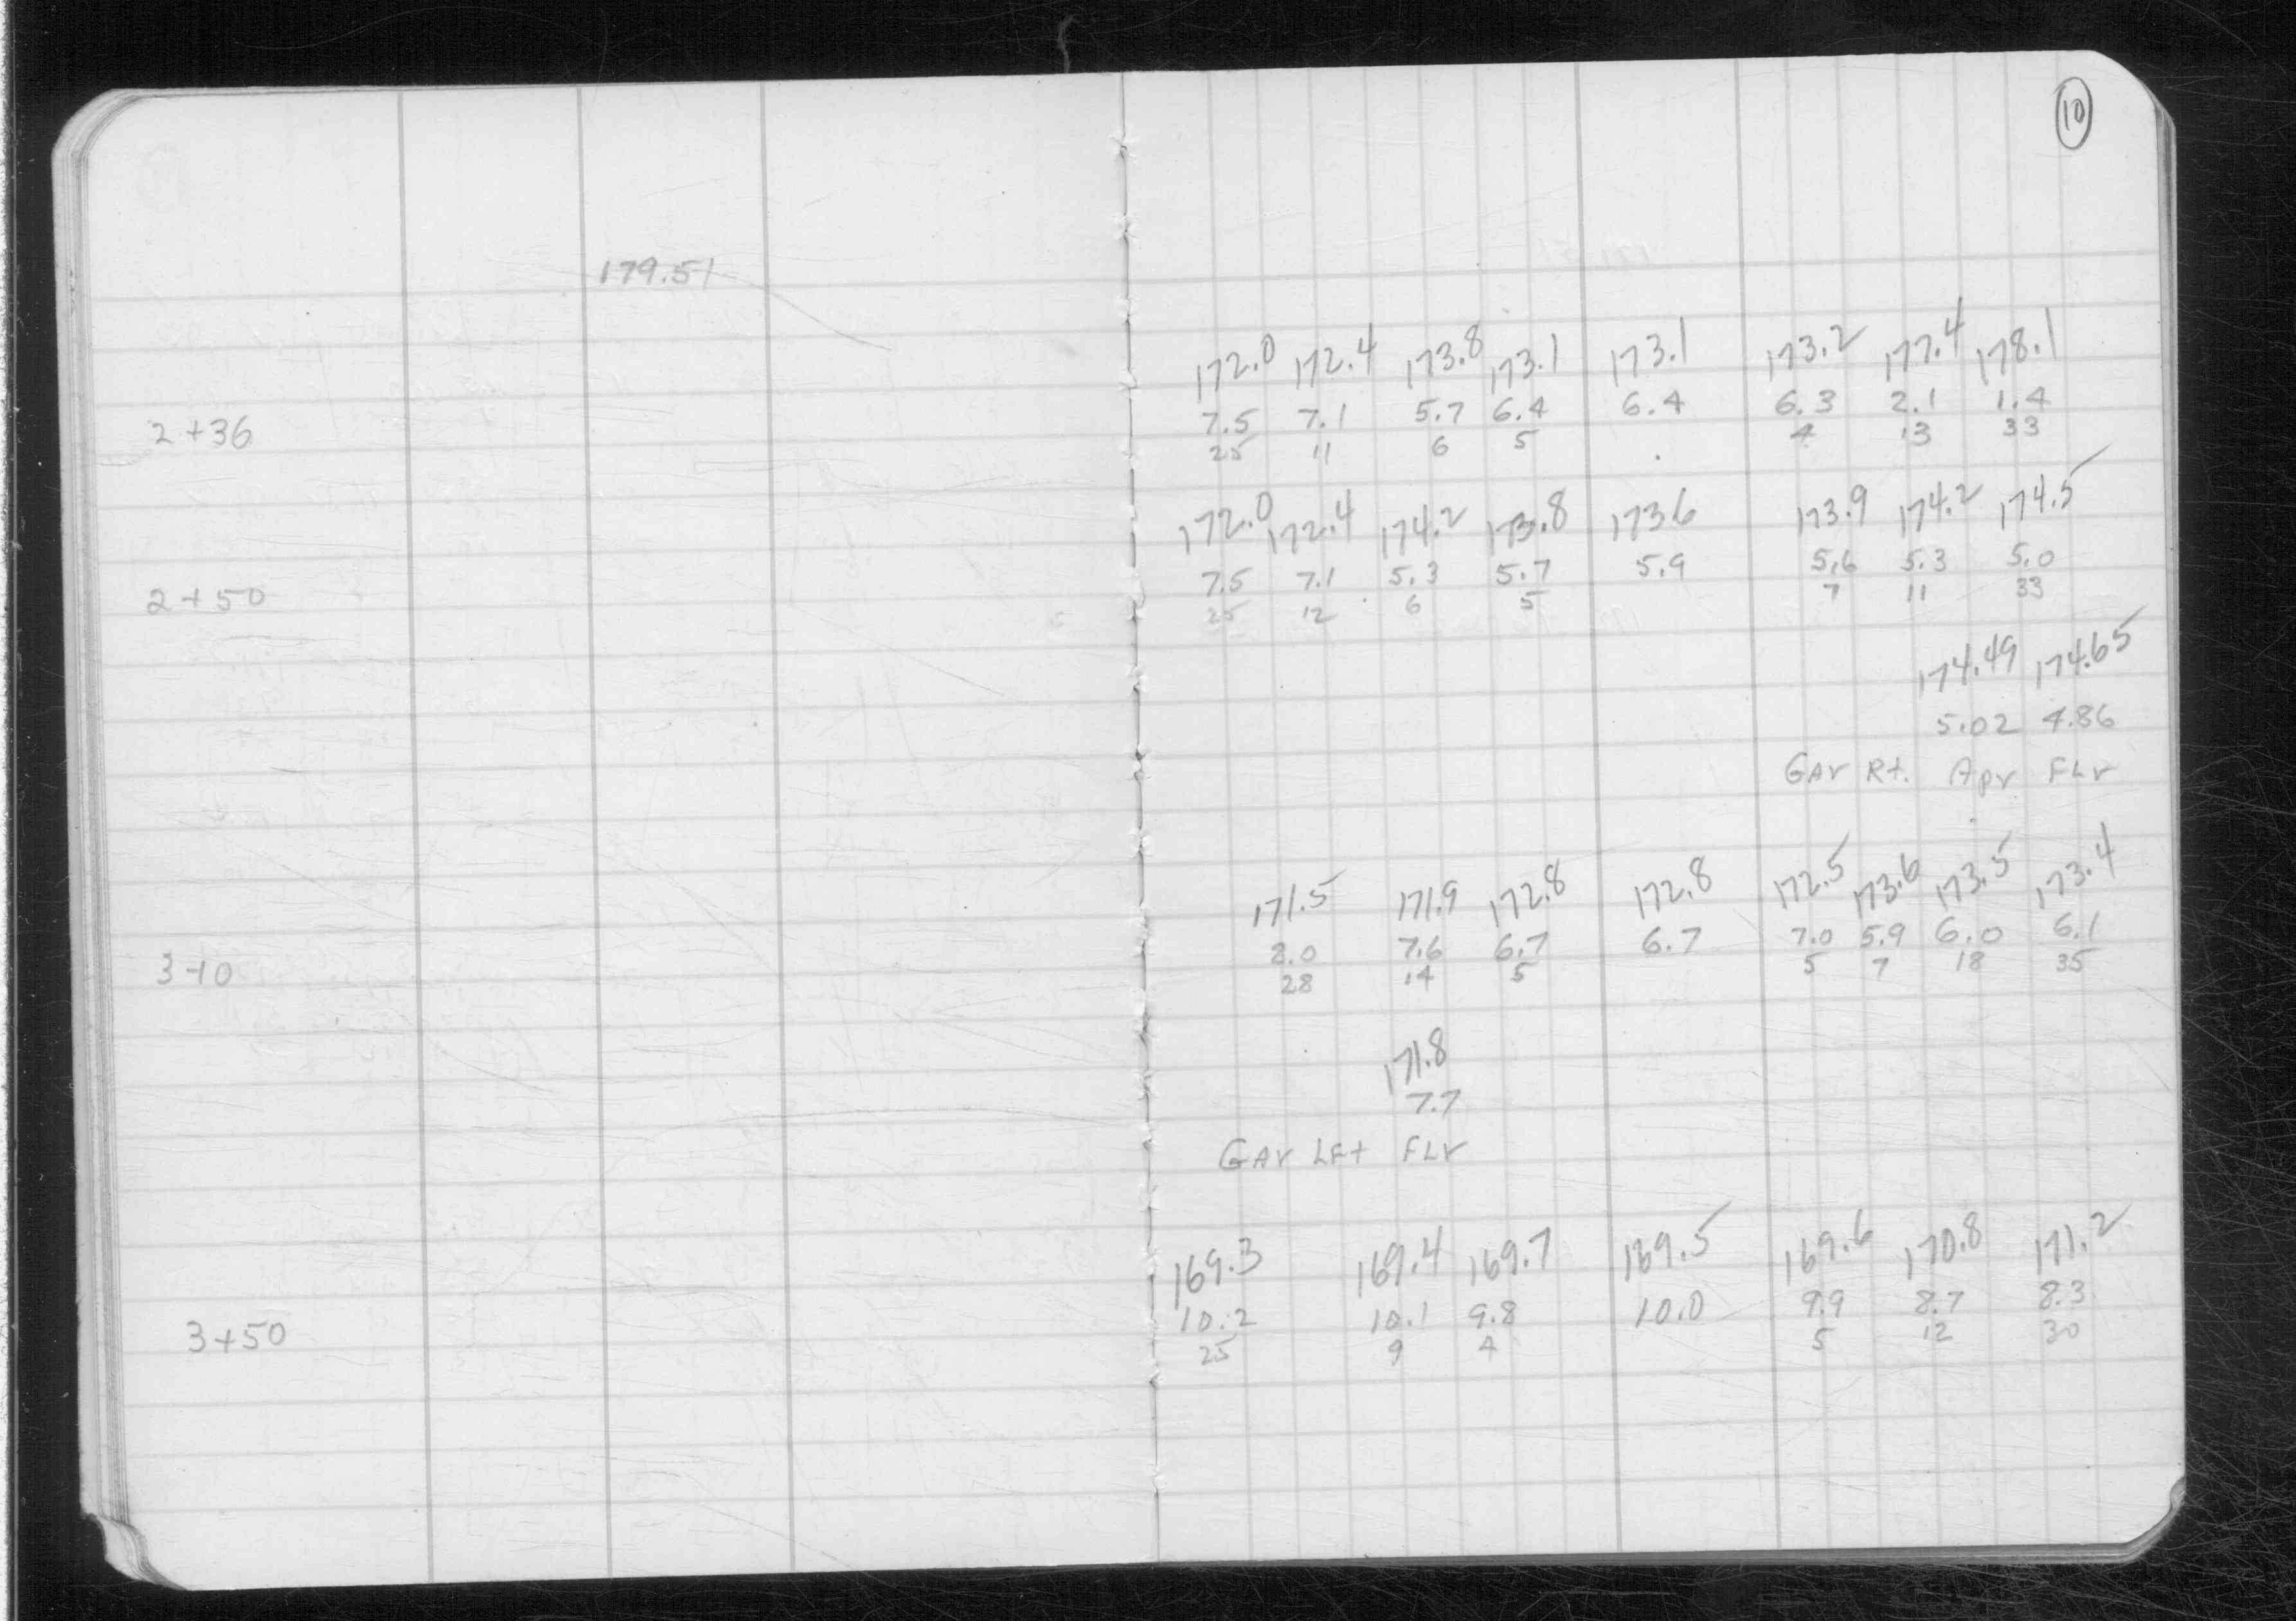 10
179.51
172.0 172.4 173.8 173.1 173.1 173.2 177.4 178.1
7.5 7.1 5.7 6.4 6.4 6.3 2.1 1.4
2+36 25 11 6 5 4 13 33
172.0 172.4 174.2 173.8 173.6 173.9 174.2 174.5
7.5 7.1 5.3 5.7 5.9 5.6 5.3 5.0
2+50 25 12 6 5 7 11 33
174.49 174.65
5.02 4.86
GAr Rt. Apr FLr
171.5 171.9 172.8 172.8 172.5 173.6 173.5 173.4
8.0 7.6 6.7 6.7 7.0 5.9 6.0 6.1
3+0 28 14 5 5 7 18 35
171.8
7.7
GAr LFt FLr
169.3 169.4 169.7 169.5 169.6 170.8 171.2
10.2 10.1 9.8 10.0 9.9 8.7 8.3
3+50 25 9 4 5 12 30